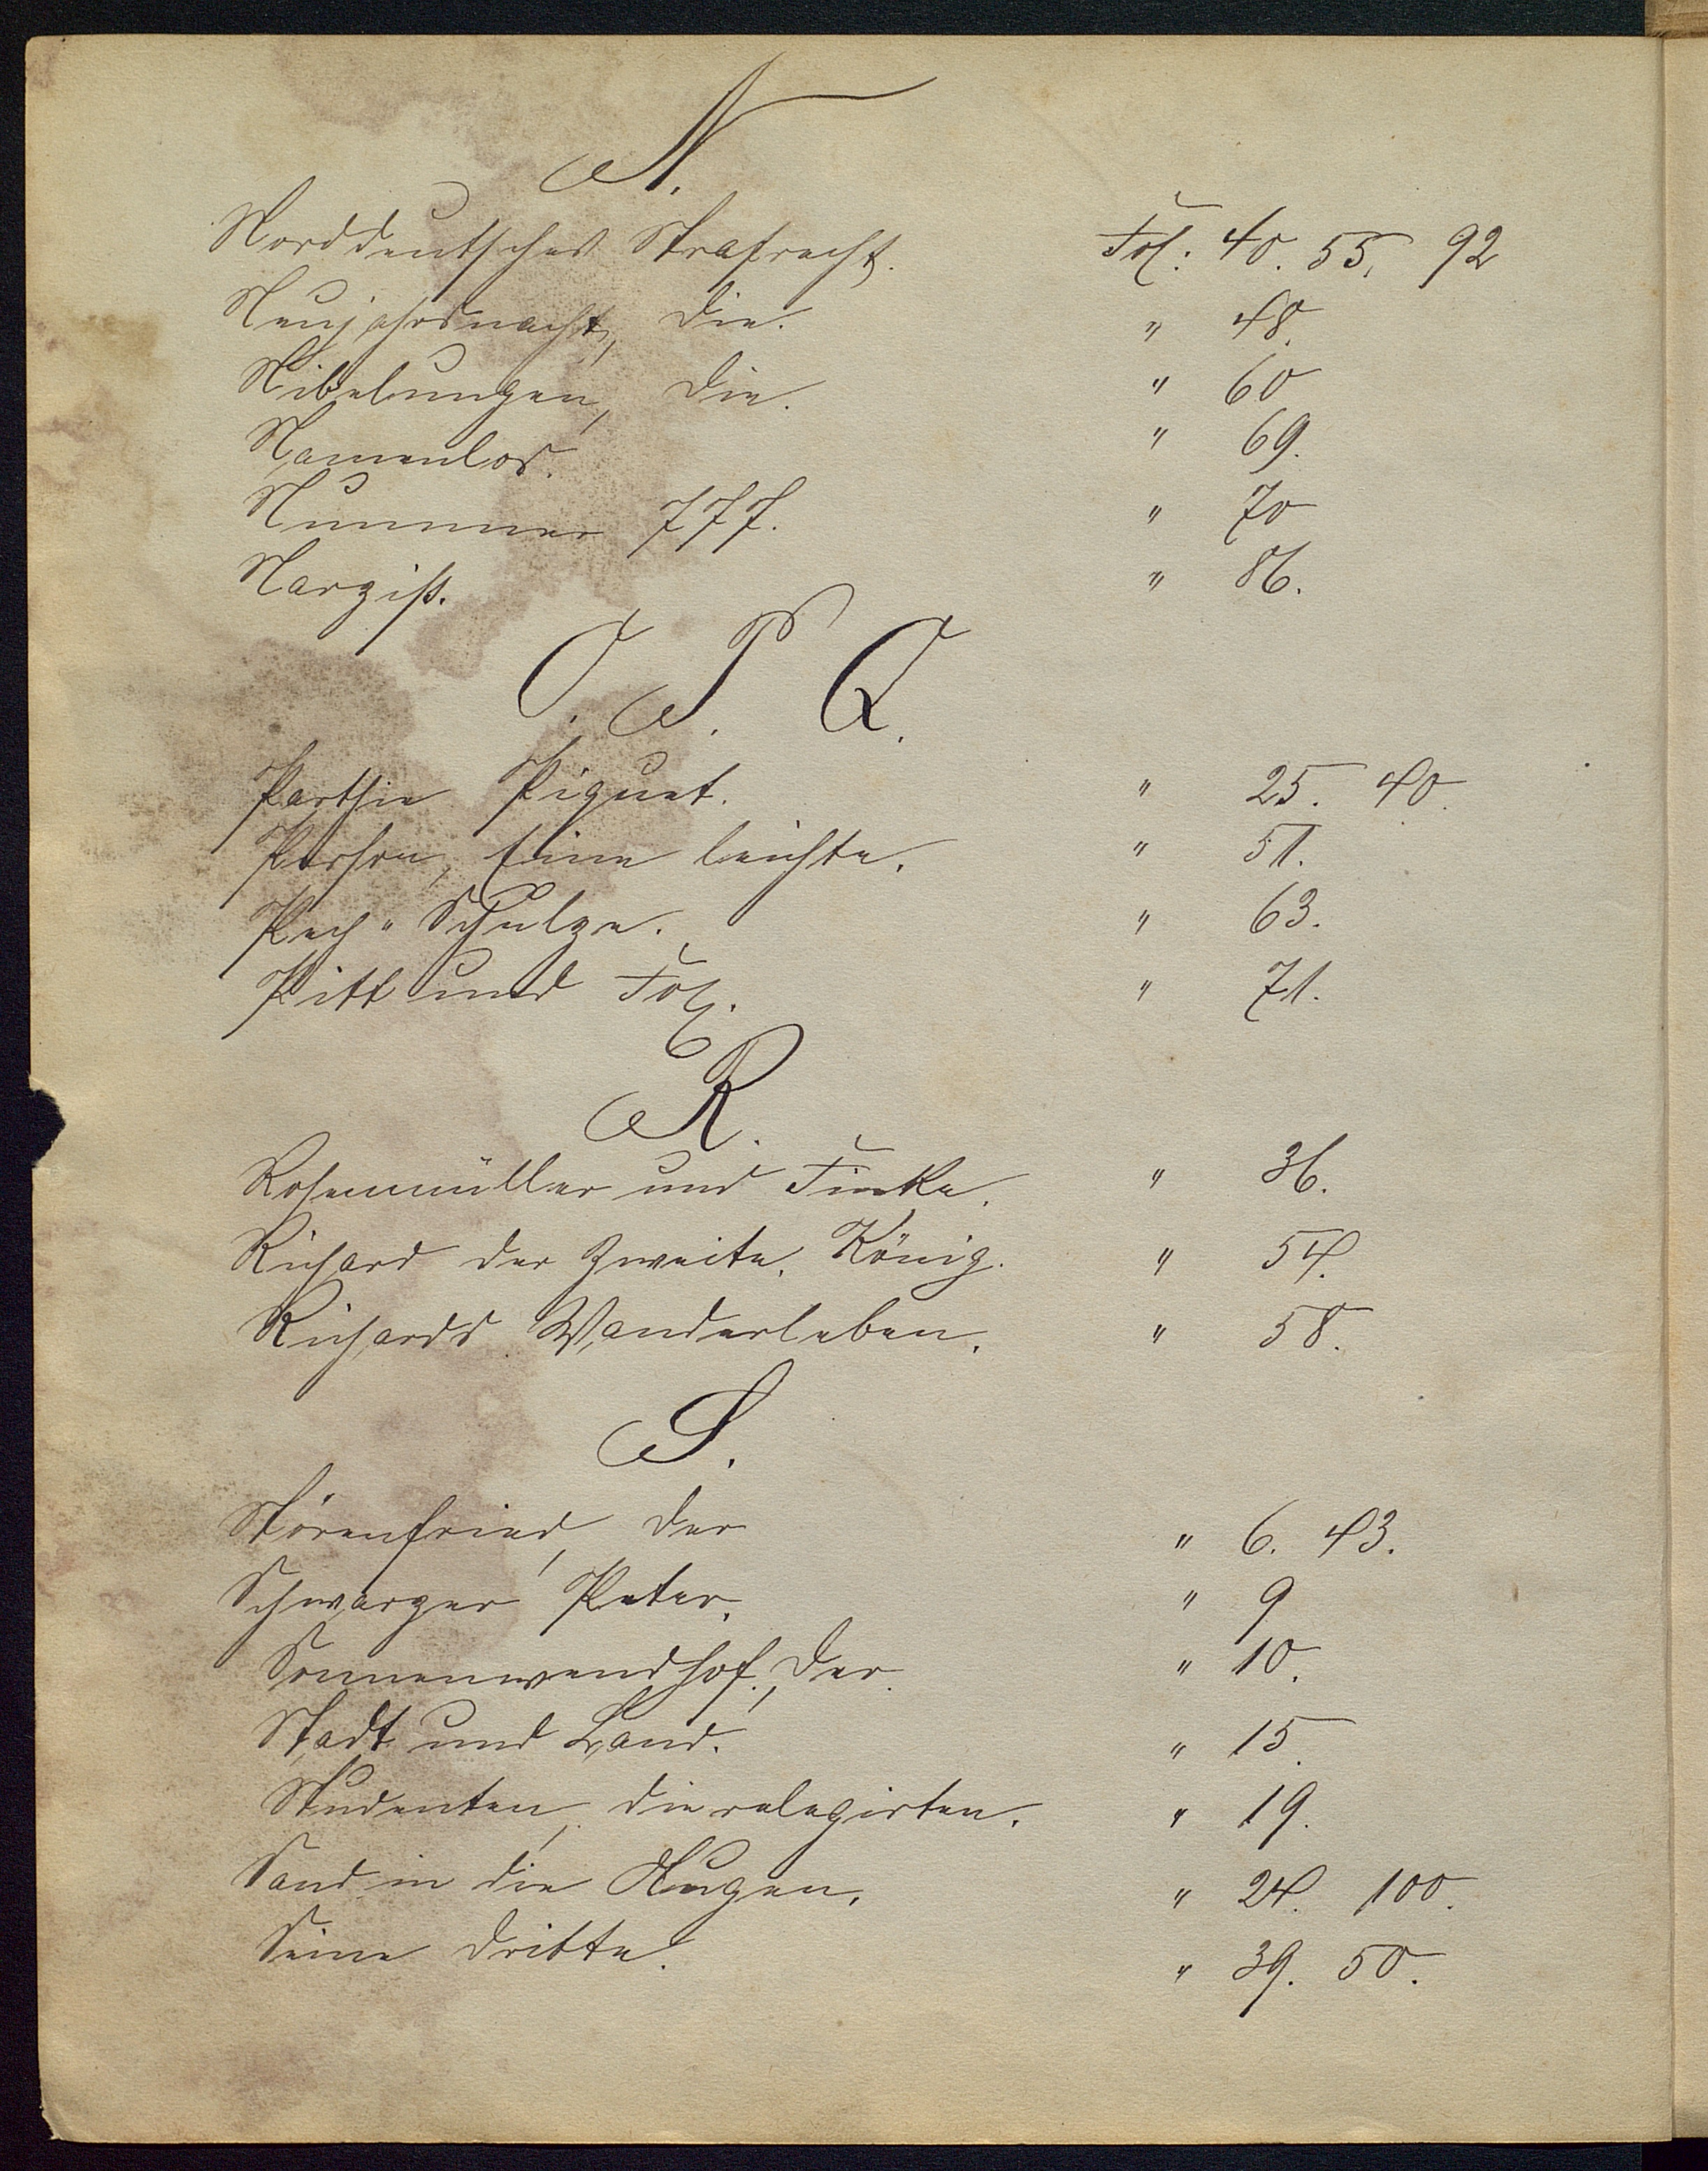 N.
Norddeutsches Strafrecht. Fol: 40. 55. 92
Neujahrsnacht, die. " 48.
Nibelungen, die. " 60
Namenlos. " 69.
Nummer 777. " 70
Narziß. " 86.
O. P. Q.
Parthie Piquet. " 25. 40.
Person, Eine leichte. " 51.
Pech-Schulze. " 63.
Pitt und Fox. " 71.
R.
Rosenmüller und Finke. " 36.
Richard der Zweite, König. " 54.
Richards Wanderleben. " 58.
S.
Störenfried, der " 6. 43.
Schwarzer Peter. " 9
Sonnenwendhof, der. " 10.
Stadt und Land. " 15.
Studenten, die relegirten. " 19.
Sand in die Augen. " 24. 100.
Seine Dritte! " 39. 50.